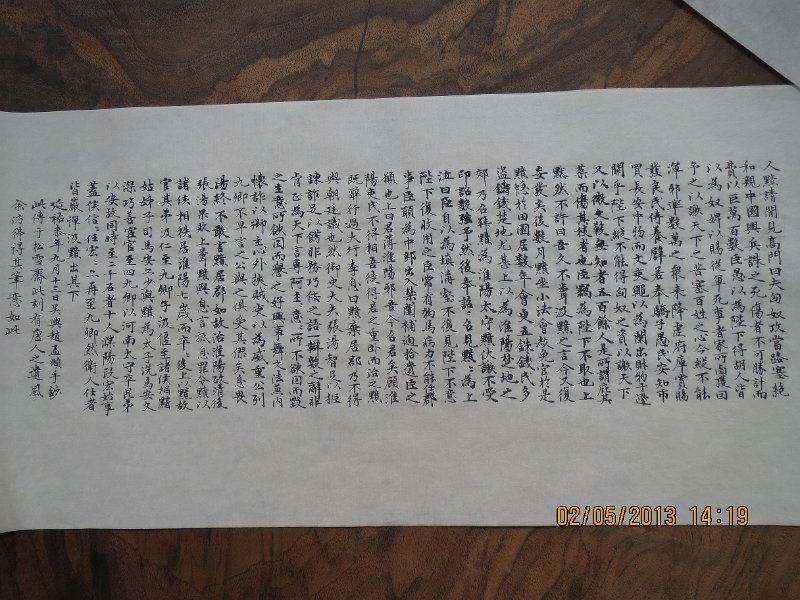 人黯請閒見高門曰夫匈奴攻當路塞絕
和親中國興兵誅之死傷者不可勝計而
費以巨萬百數臣愚以為陛下得胡人皆
以為奴婢以賜從軍死事者家所鹵獲因
予之以謝天下之苦塞百姓之心今縱不能
渾邪率數萬之衆來降虛府庫賞賜
發良民侍養譬若奉驕子愚民安知市
買長安中物而文吏繩以為闌出財物于邊
關乎陛下縱不能得匈奴之資以謝天下
又以微文殺無知者五百餘人是所謂庇其
葉而傷其枝者也臣竊為陛下不取也上
默然不許曰吾久不聞汲黯之言今又復
妄發矣後數月黯坐小法會赦免官於是
黯隱於田園居數年會更五銖錢民多
盜鑄錢楚地尤甚上以為淮陽楚地之
郊乃召拜黯為淮陽太守黯伏謝不受
印詔數強予然後奉詔〻召見黯〻為上
泣曰臣自以為填溝壑不復見陛下不意
陛下復收用之臣常有狗馬病力不能任郡
事臣願為中郎出入禁闥補過拾遺臣之
願也上曰君薄淮陽邪吾今召君矣顧淮
陽吏民不得相吾徒得君之重臥而治之黯
既辭行過大行李息曰黯棄居郡不得
與朝廷議也然御史大夫張湯智足以拒
諫詐足以飾非務巧佞之語辯數之辭非
肯正為天下言專阿主意〻所不欲因而毀
之主意所欲因而譽之好興事舞文法內
懷詐以御主心外挾賊吏以為威重公列
九卿不早言之公與之俱受其僇矣息畏
湯終不敢言黯居郡如故治淮陽政清後
張湯果敗上聞黯與息言抵息罪令黯以
諸侯相秩居淮陽七歲而卒〻後上以黯故
官其弟汲仁至九卿子汲偃至諸侯相黯
姑姊子司馬安亦少與黯為太子洗馬安文
深巧善宦官至四九卿以河南太守卒昆弟
以安故同時至二千石者十人濮陽段宏始事
蓋侯信〻任宏〻亦再至九卿然衛人仕者
皆嚴憚汲黯出其下
延祐柒年九月十三日吳興趙孟頫手鈔
此傳于松雪齋此刻有唐人之遺風
余仿佛得其筆意如此
02/05/2013 14:19